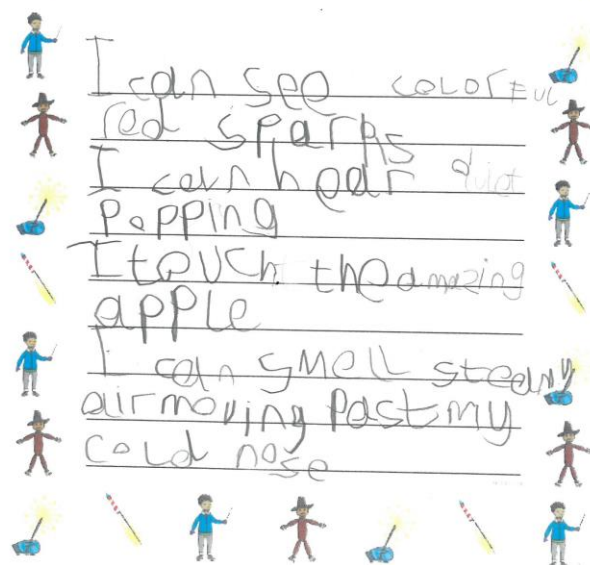 I can see colorful
red sparks
I can hear quiet
popping
I touch the amazing
apple
I can smell steamy
air moving past my
cold nose